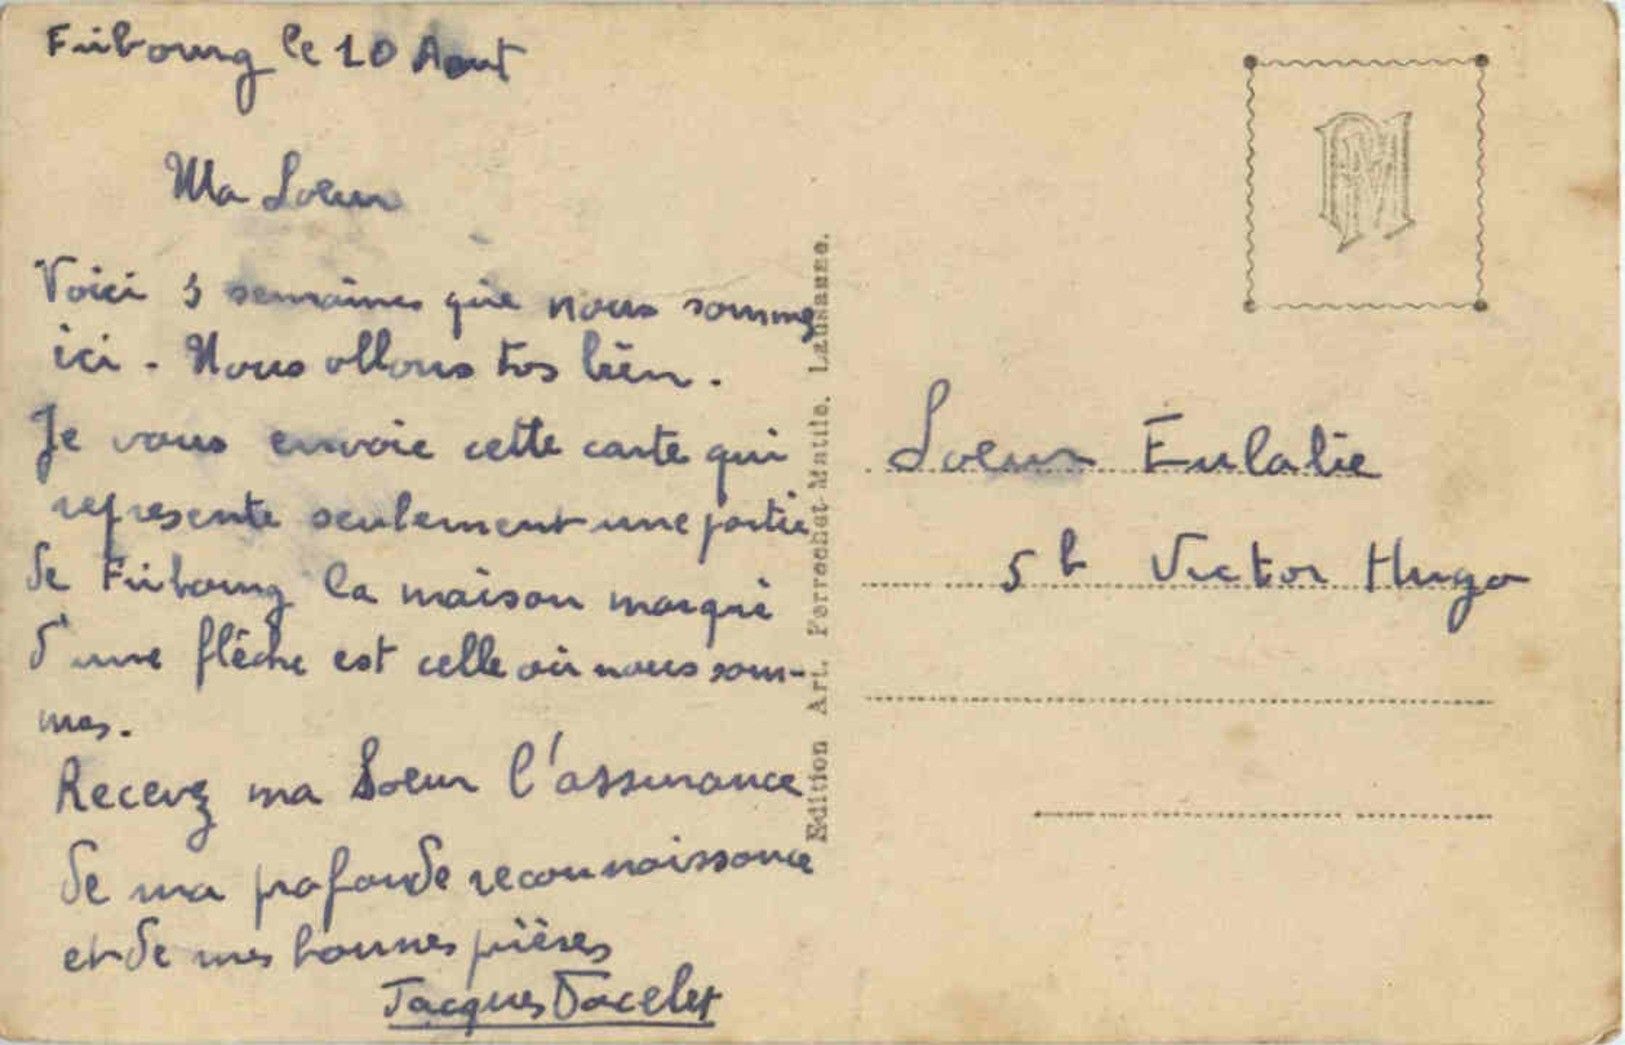 Fribourg le 10 Aout
Ma Soeur
Voici 3 semaines que nous sommes
ici. Nous allons tos bien.
Je vous envoie cette carte qui
represente seulement une partie
de Fribourg la maison marqué
d'une flèche est celle où nous som-
mes.
Recevez ma Soeur l'assurance
de ma profonde reconnaissance
et de mes bonnes prières
Jacques
Edition Art. Perrochet-Matile. Lausanne.
PM
Soeur Eulalie
Victor Hugo